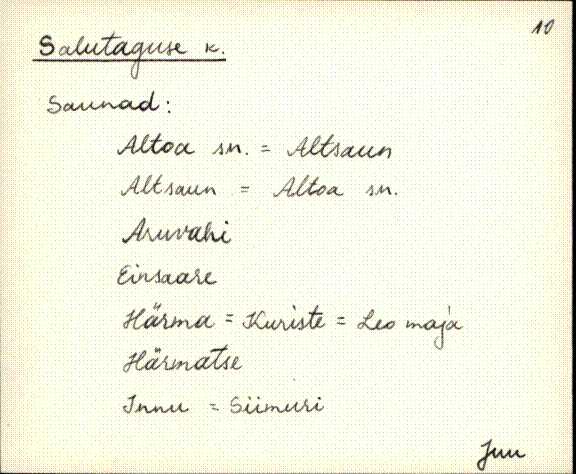 10
Salutaguse k.
Saunad:
Altoa sn. = Altsaun
Altsaun = Altoa sn.
Aruvahi
Einsaare
Härma = Kuriste = Leo maja
Härmatse
Innu = Siimuri
Juu